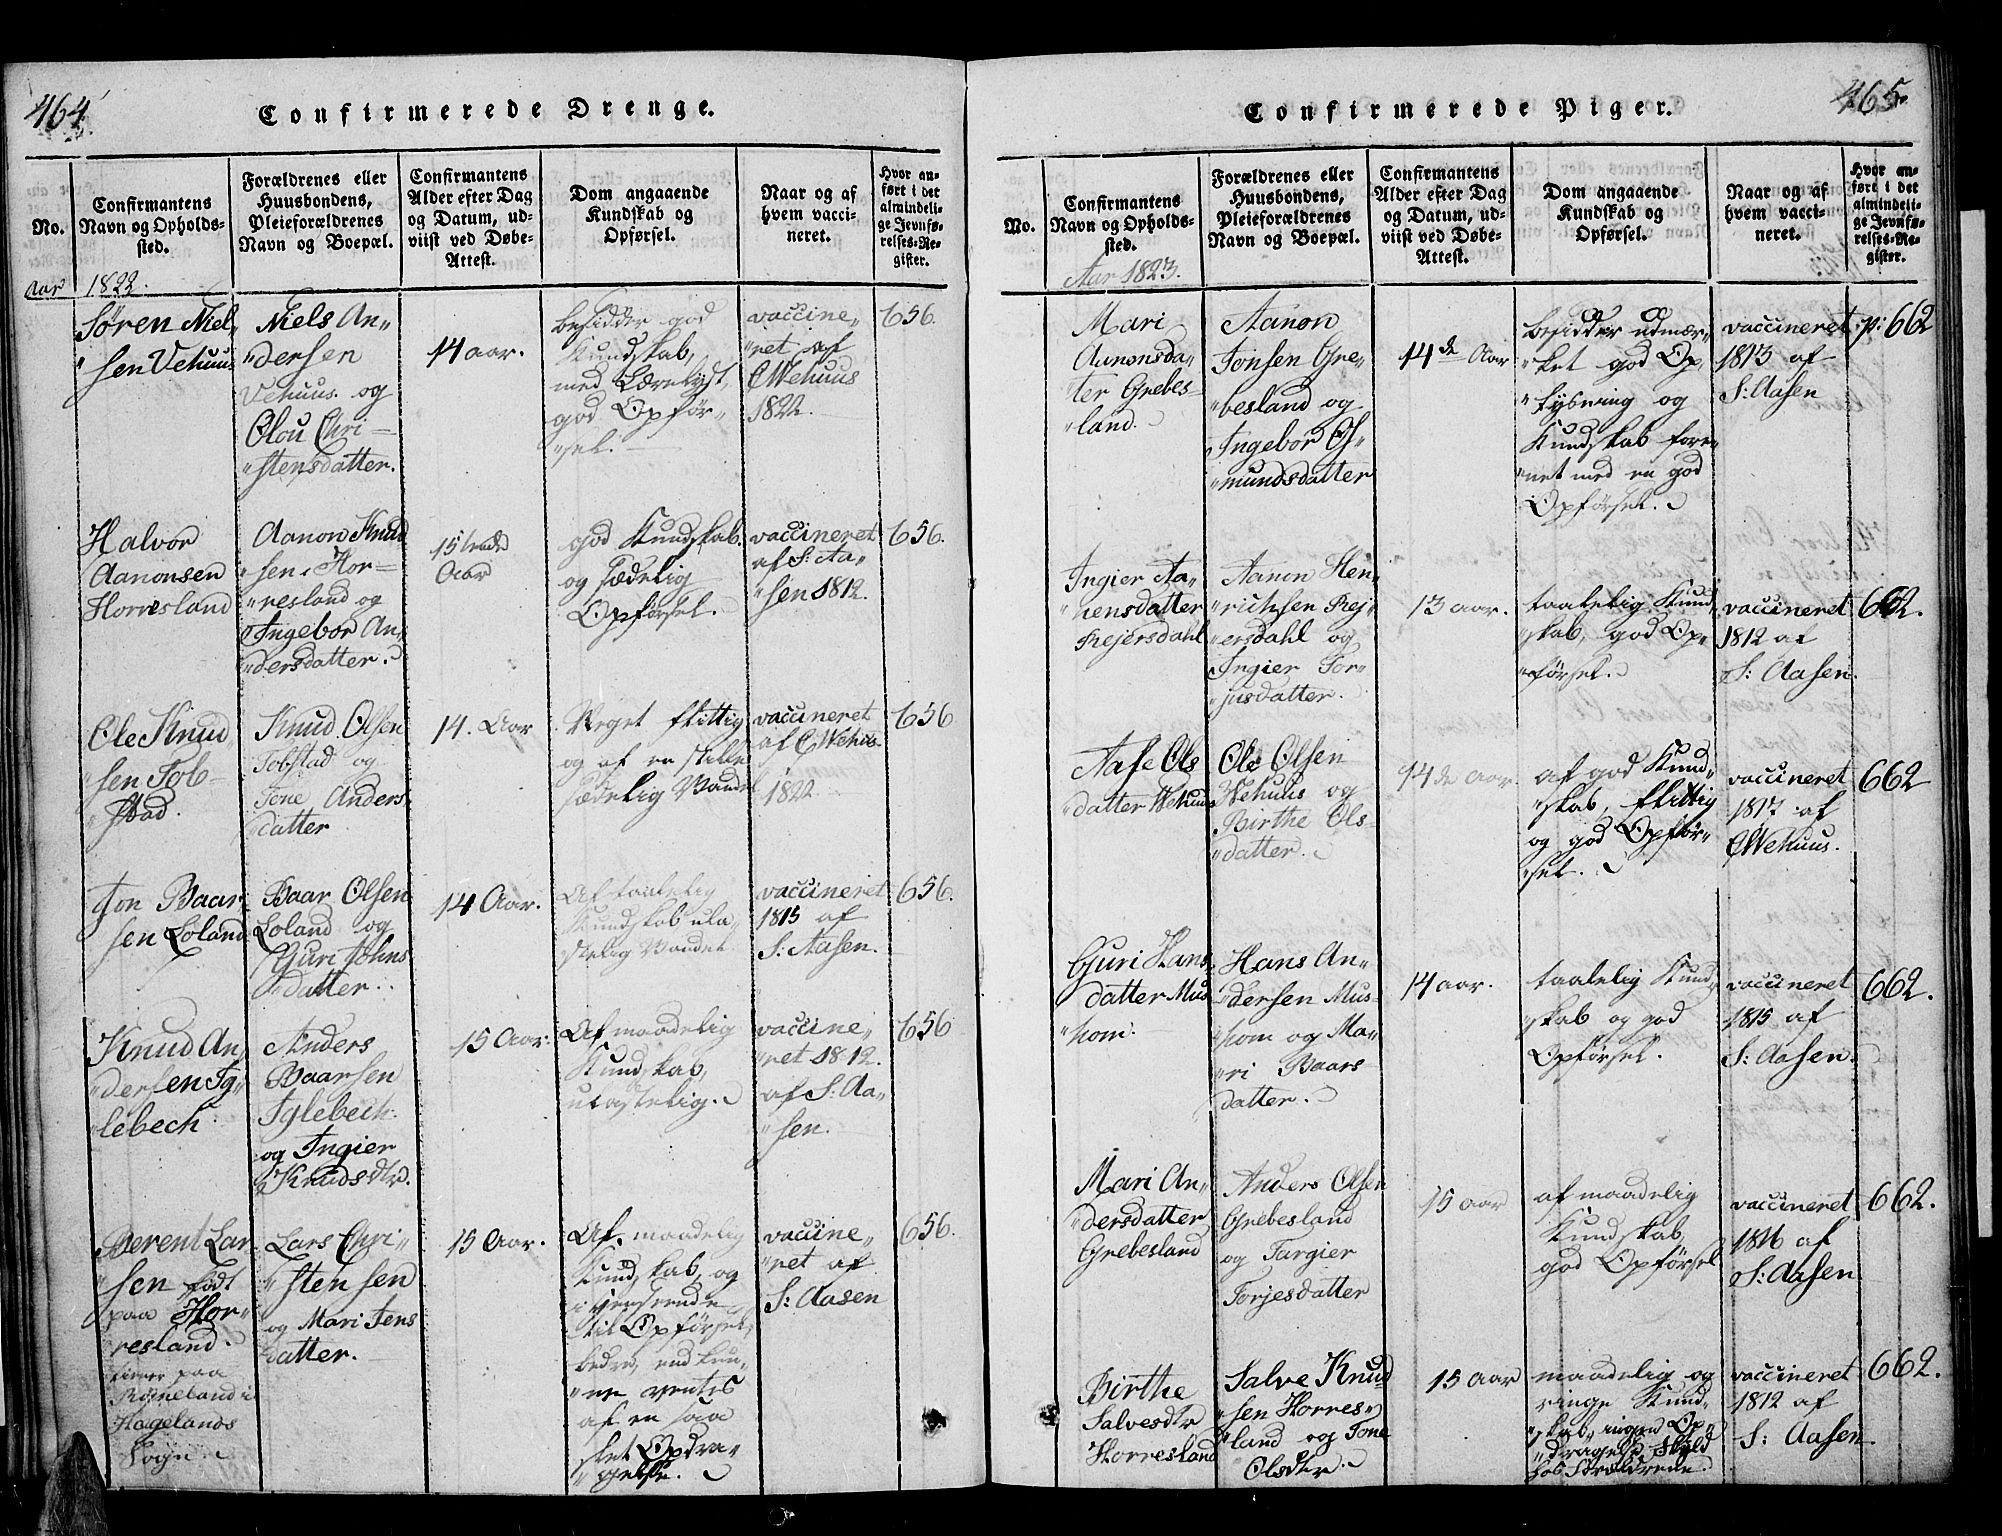 464
Confirmerede Drenge.
No.
Confirmantens
Navn og Opholds-
sted.
Forældrenes eller
Huusbondens,
Pleieforældrenes
Navn og Boepæl.
Confirmantens
Alder efter Dag
og Datum, ud-
viist ved Døbe-
Attest.
Dom angaaende
Kundskab og
Opførsel.
Naar og af
hvem vacci-
neret.
Hvor an-
ført i det
almindeli-
ge Jevnfø-
relses-Re-
gister.
Aar 1822.
Søren Niel-
"sen Vehuus
Niels An-
"dersen
Vehuus og
Olou Chri-
"stensdatter.
14 aar.
besidder god
Kundskab,
med Lærelyst,
god Opfør-
"sel.
vaccine-
"ret af
C Wehuus
1822.
656.
Halvor
Aanonsen
Horresland
Aanon Knud
"sen Hor-
"resland og
Ingebor An-
"dersdatter.
15tende
Aar
god Kundskab.
og sædelig
Opførsel.
vaccineret
af S: Aa-
"sen 1812.
656.
Ole Knud-
"sen Tob-
"stad.
Knud Olsen
Tobstad og
Tone Anders
"datter
14. Aar
Meget flittig
og af en stille
sædelig Vandel
vaccineret
af C Wehus
1822.
656
Jon Baar-
"sen Loland
Baar Olsen
Loland og
Guri Johns
"datter.
14 Aar.
Af taalelig
Kundskab ula-
stelig Vandel
vaccineret
1815 af
S: Aasen.
656.
Knud An-
"dersen Ig-
"lebech
Anders
Baarsen
Iglebech
og Ingier
Knudsdtr.
15 Aar.
Af maadelig
Kundskab,
ulastelig.
vaccine-
"ret 1812.
af S: Aa-
"sen.
656
Berent Lar-
"sen født
paa Hor-
resland.
tiener paa
Røineland i
Hagelands
Sogn.
Lars Chri-
"stensen
og Mari Jens
datter.
15 Aar.
Af maadelig
Kundskab, og
i henseende
til Opførsel,
bedre, end kun-
"ne ventes
af en saa
slet Opdra-
"gelse.
vaccine-
"ret af
S: Aasen
656.
465
Confirmerede Piger.
No.
Confirmantens
Navn og Opholds-
sted.
Forældrenes eller
Huusbondens,
Pleieforældrenes
Navn og Boepæl.
Confirmantens
Alder efter Dag
og Datum, ud-
viist ved Døbe-
Attest.
Dom angaaende
Kundskab og
Opførsel.
Naar og af
hvem vacci-
neret.
Hvor an-
ført i det
almindeli-
ge Jevnfø-
relses-Re-
gister.
Aar 1823.
Mari
Aanonsda-
"ter Grebes-
"land.
Aanon
Jonsen Gre-
"besland og
Ingebor Os-
"mundsdatter
14de Aar
besidder udmær-
"ket god Op-
"lysning og
Kundskab fore-
"net med en god
Opførsel.
vaccineret
1813 af
S: Aasen
p: 662
Ingier Aa-
"nensdatter
Rejersdahl
Aanon Hen-
"richsen Rej-
"ersdahl og
Ingier Tor-
"jusdatter.
13 aar.
taalelig Kund-
"skab, god Op-
"førsel.
vaccineret
1812 af
S: Aasen.
662.
Aase Ols
"datter Wehuus
Ole Olsen
Wehuus og
Birthe Ols-
"datter.
14de aar.
af god Kund-
"skab, flittig
og god Opfør-
"sel.
vaccineret
1817 af
C Wehuus.
662
Guri Hans-
datter Mus-
"hom.
Hans An-
"dersen Mus-
"hom og Ma-
"ri Baars
datter.
14 aar.
taalelig Kund-
"skab og god
Opførsel.
vaccineret
1815 af
S: Aasen.
662.
Mari An-
"dersdatter
Grebesland
Anders Olsen
Grebesland
og Targier
Torjesdatter
15 aar
af maadelig
Kundskab,
god Opførsel
vaccineret
1816 af
S: Aasen
662.
Birthe
Salvesdtr
Horresland
Salve Knud
"sen Horres-
"land og Tone
Olsdtr.
15 aar
maadelig og
ringe Kund-
"skab, ingen Op-
"dragelse Skyld
hos Forældrene.
vaccineret
1812 af
S: Aasen.
662.